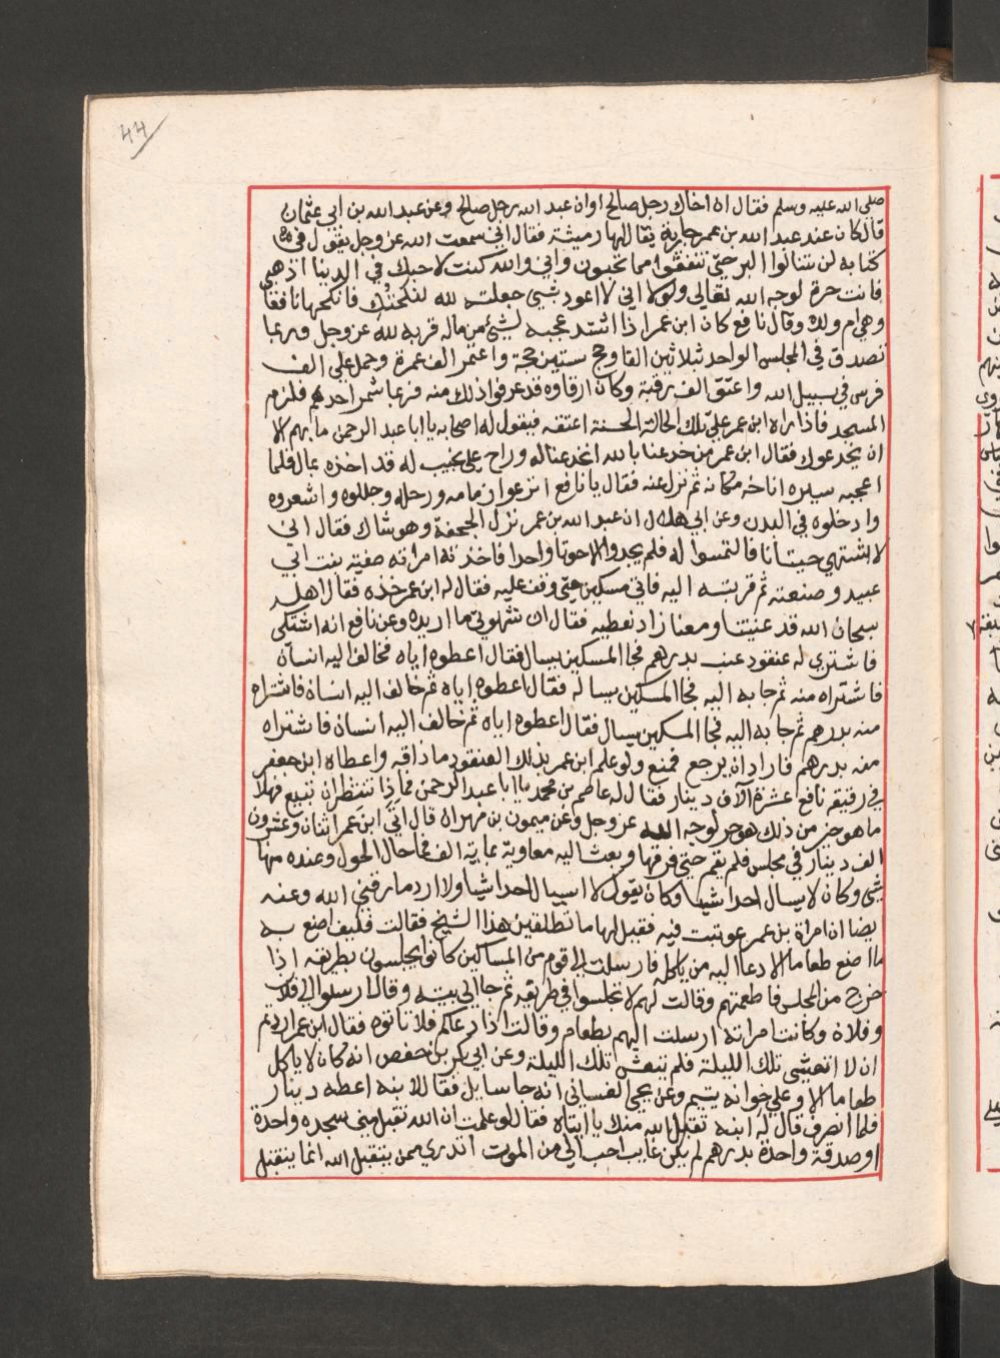 44
صلى الله عليه وسلم فقال ان اخاك رجل صالح او ان عبد الله رجل صالح وعن عبد الله بن ابي عثمان
قال كان عند عبد الله بن عمر جارية يقال لها رميثة فقال اني سمعت الله عز وجل يقول في
كتابه لن تنالوا البر حتى تنفقوا مما تحبون واني والله كنت لاحبك في الدنيا اذهبي
فانت حرة لوجه الله تعالى ولولا اني لا اعود شيي جعلته لله لنكحتك فانكحها نافعا
وهي ام ولده وقال نافع كان ابن عمر اذا اشتد عجبه لشيء من ماله قربه لله عز وجل وربما
تصدق في المجلس الواحد ثلاثين الفا وحج ستين حجة واعتمر الف عمرة وحمل على الف
فرس في سبيل الله واعتق الف رقبة وكان ارقاوه قد عرفوا ذلك منه فربما شمر احدهم فلزم
المسجد فاذا راه ابن عمر على تلك الحالة الحسنة اعتقه فيقول له اصحابه يا ابا عبد الرحمن ما بهم الا
ان يخدعوك فقال ابن عمر من خدعنا بالله انخدعنا له وراح على نجيب له قد اخذه بمال فلما
اعجبه سيره اناخه مكانه ثم نزل عنه فقال يا نافع انزعوا زمامه ورحله وجللوه واشعروه
وادخلوه في البدن وعن ابي هلال ان عبد الله بن عمر نزل الجحفة وهو شاك فقال اني
لاشتهي حيتانا فالتمسوا له فلم يجدوا الا حوتا واحدا فاخذته امراته صفية بنت ابي
عبيد وصنعته ثم قربته اليه فاتي مسكين حتى وقف عليه فقال له ابن عمر خذه فقال اهله
سبحان الله قد عنيتنا ومعنا زاد نعطيه فقال ان شهوتي ما اريده وعن نافع انه اشتكى
فاشتري له عنقود عنب بدرهم فجا المسكين يسال فقال اعطوه اياه فخالف اليه انسان
فاشتراه منه ثم جا به اليه فجا المسكين يساله فقال اعطوه اياه ثم خالف اليه انسان فاشتراه
منه بدرهم ثم جا به اليه فجا المسكين يسال فقال اعطوه اياه ثم خالف اليه انسان فاشتراه
منه بدرهم فاراد ان يرجع فمنع ولو علم ابن عمر بذلك العنقود ما ذاقه واعطاه ابن جعفر
في رقيقه نافع عشرة الاف دينار فقال له عاصم بن محمد يا ابا عبد الرحمن فما ذا تنتظر ان تبيع فهلا
ما هو خير من ذلك هو حر لوجه الله عز وجل وعن ميمون بن مهران قال اتي ابن عمر اثنان وعشرون
الف دينار في مجلس فلم يقم حتى فرقها وبعث اليه معاوية بماية الف فما حال الحول وعنده منها
شي وكان لا يسال احدا شيا وكان يقول لا اسال احدا شيا ولا ارد ما رزقني الله وعنه
ايضا ان امراة بن عمر عوتبت فيه فقيل لها ما تلطفين هذا الشيخ فقالت فكيف اصنع به
ما اصنع طعاما الا دعا اليه من ياكله فارسلت الى قوم من المساكين كانوا يجلسون بطريقه اذا
خرج من المجلس فاطعمتهم وقالت لهم لا تجلسوا في طريقه ثم جا الى بيته وقال ارسلوا الى فلان
وفلان وكانت امراته ارسلت اليهم بطعام وقالت اذا دعاكم فلا تاتوه فقال ابن عمر اردتم
ان لا اتعشى تلك الليلة فلم يتعش تلك الليلة وعن ابي بكر بن حفص انه كان لا ياكل
طعاما الا وعلى خوانه يتيم وعن يحيى الغساني انه جا سايل فقال لابنه اعطه دينار
فلما انصرف قال له ابنه تقبل الله منك يا ابتاه فقال لو علمت ان الله تقبل مني سجدة واحدة
او صدقة واحدة بدرهم لم يكن غايب احب الي من الموت اتدري ممن يتقبل الله انما يتقبل